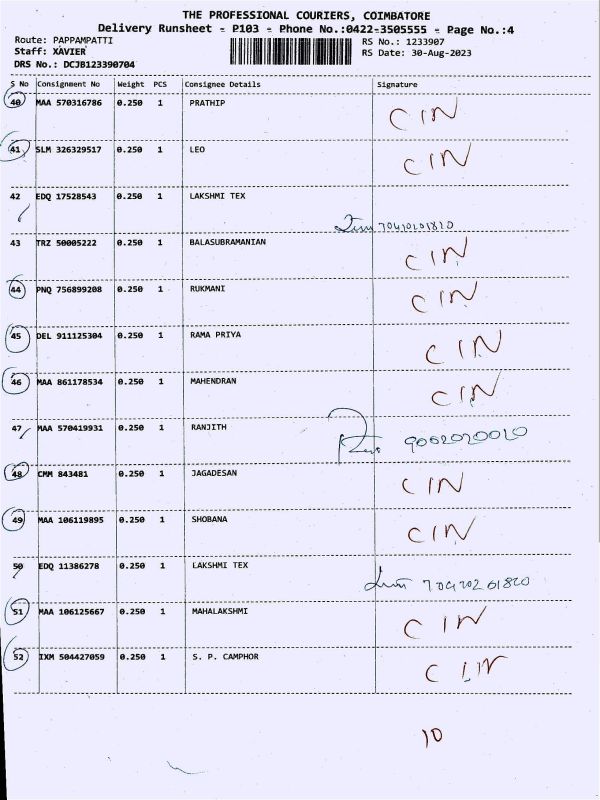 THE PROFESSIONAL COURIERS, COIMBATORE
Delivery Runsheet - P103 - Phone No.:0422-3505555 - Page No.:4
Route: PAPPAMPATTI RS No.: 1233907
Staff: XAVIER RS Date: 30-Aug-2023
DRS No.: DCJB123390704
S No Consignment No Weight PCS Consignee Details Signature
40 MAA 570316786 0.250 1 PRATHIP CIN
41 SLM 326329517 0.250 1 LEO CIN
42 EDQ 17528543 0.250 1 LAKSHMI TEX
43 TRZ 50005222 0.250 1 BALASUBRAMANIAN CIN
44 PNQ 756899208 0.250 1 RUKMANI CIN
45 DEL 911125304 0.250 1 RAMA PRIYA CIN
46 MAA 861178534 0.250 1 MAHENDRAN CIN
47 MAA 570419931 0.250 1 RANJITH
48 CMM 843481 0.250 1 JAGADESAN CIN
49 MAA 106119895 0.250 1 SHOBANA CIN
50 EDQ 11386278 0.250 1 LAKSHMI TEX
51 MAA 106125667 0.250 1 MAHALAKSHMI CIN
52 IXM 504427059 0.250 1 S. P. CAMPHOR CIN
10